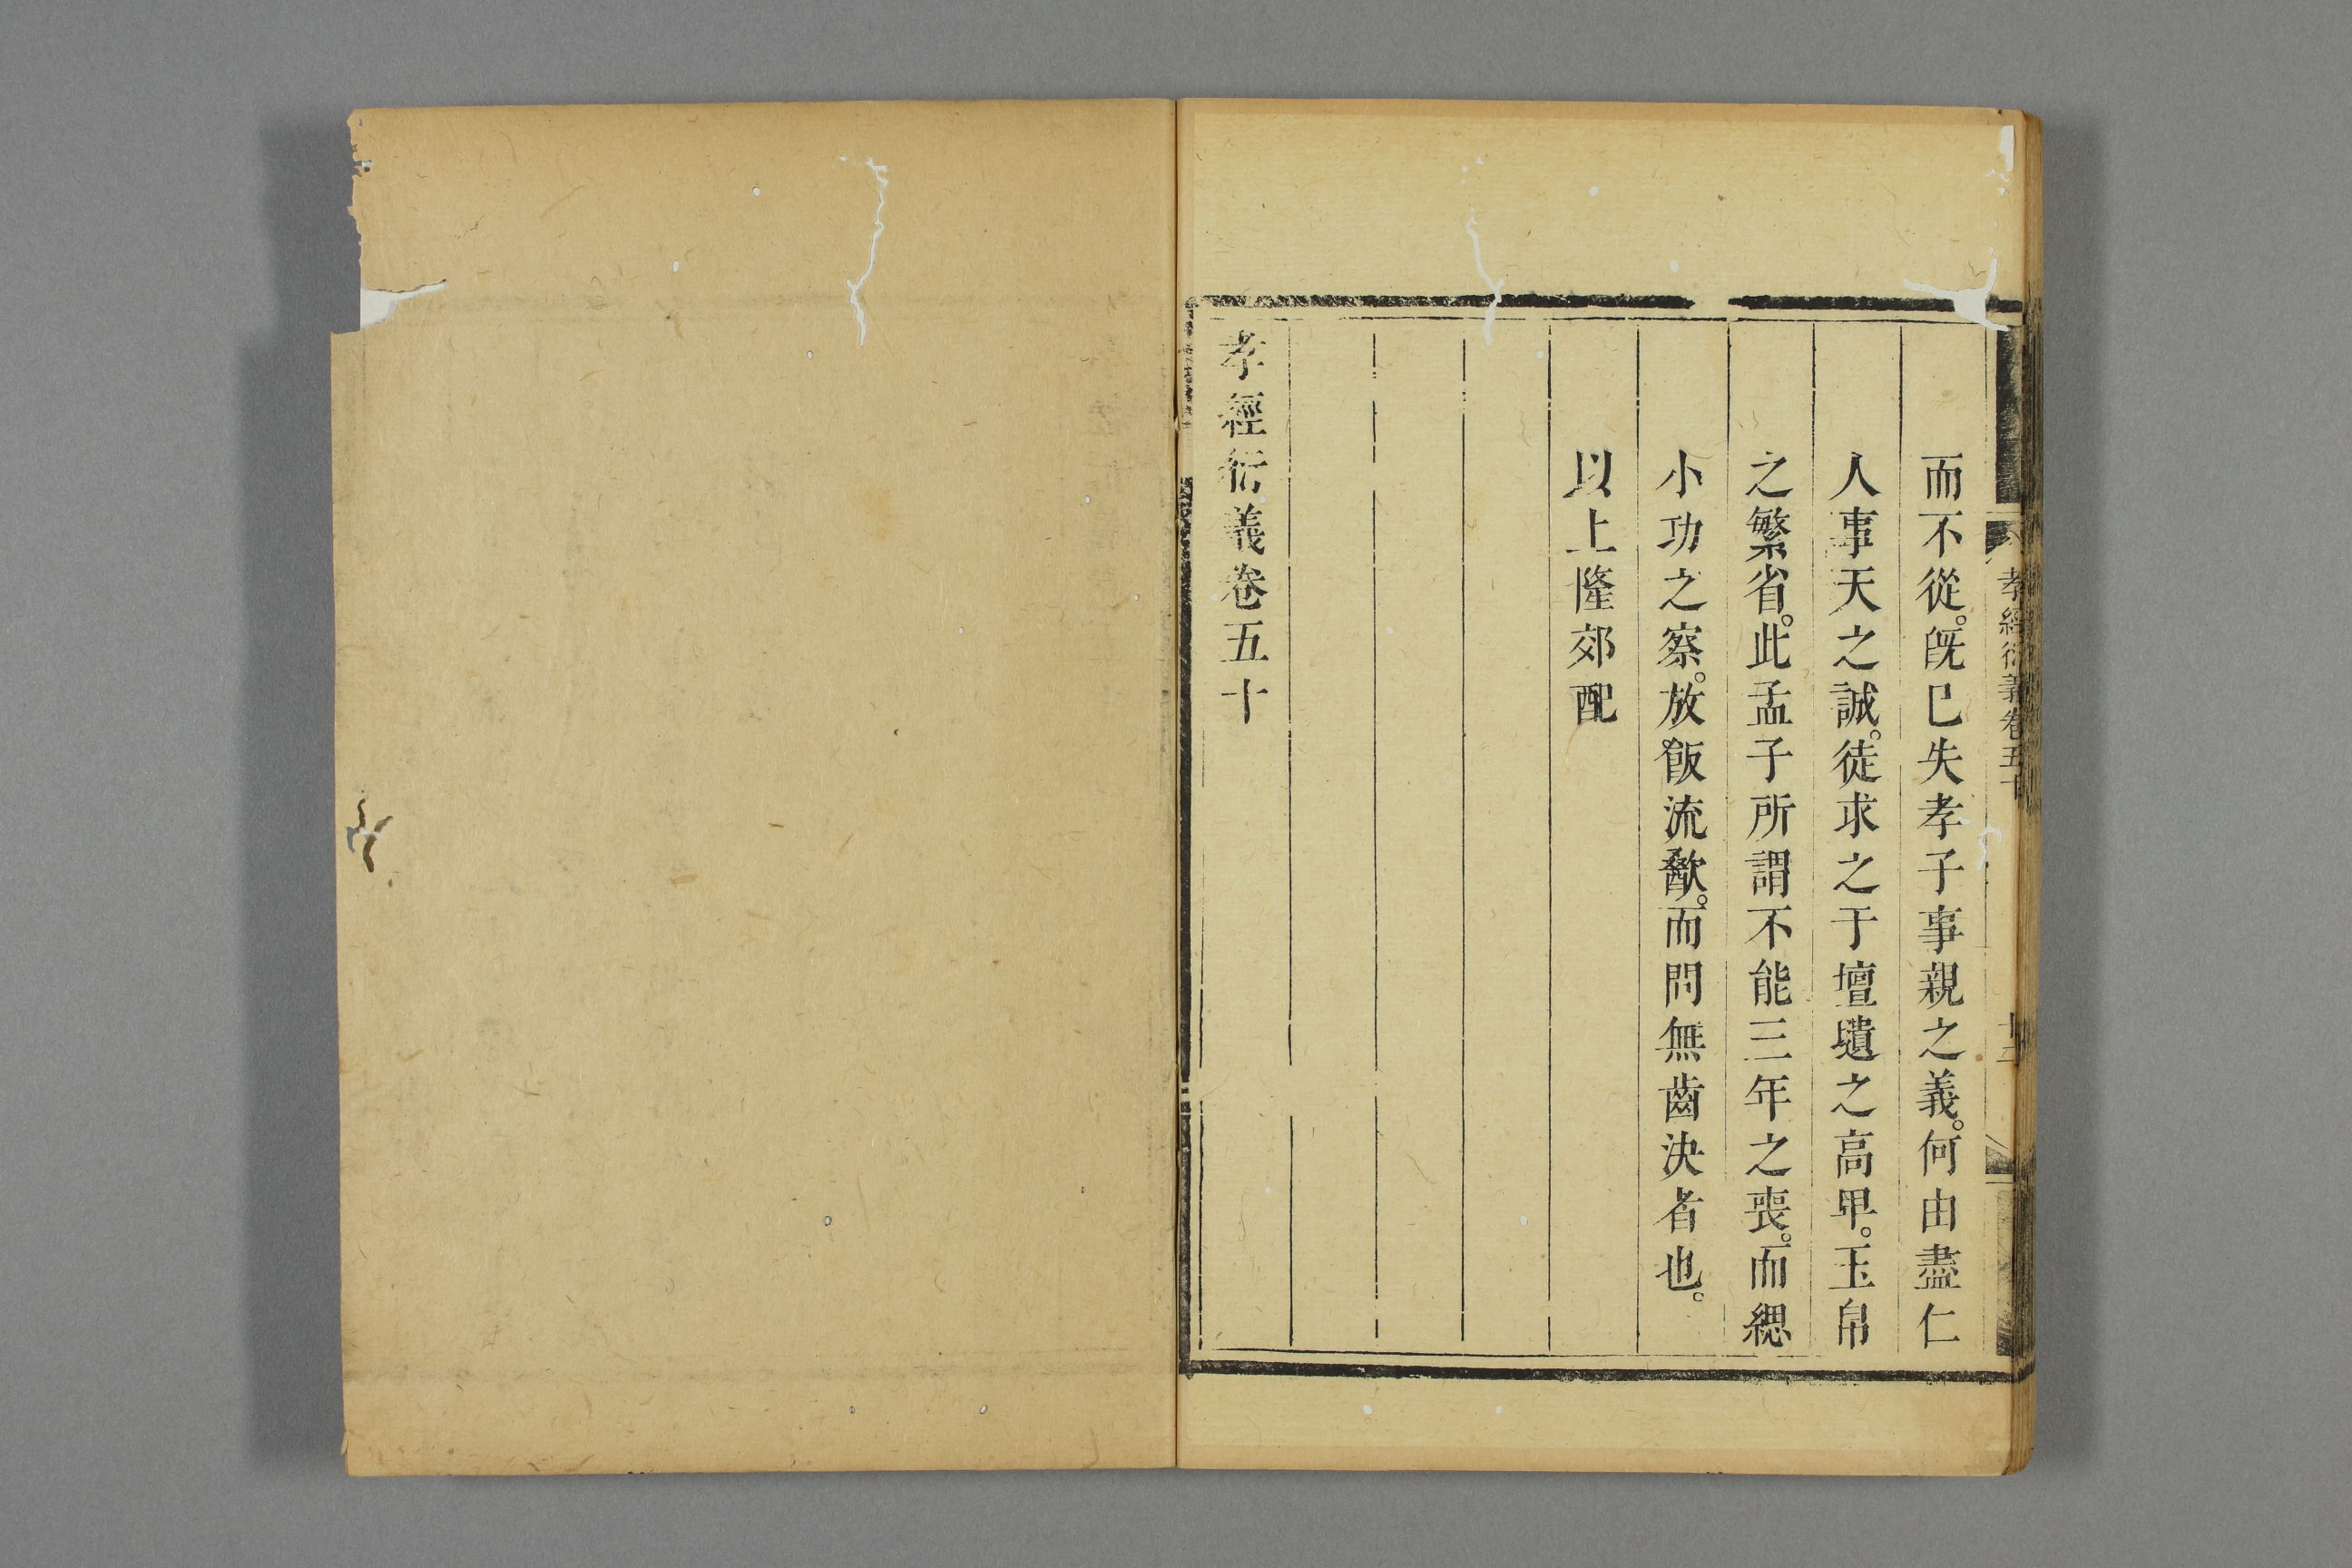 孝經衍義卷五十
而不從。旣巳失孝子事親之義。何由盡仁
人事天之誠。徒求之于壇壝之高卑。玉帛
之繁省。此孟子所謂不能三年之喪。而緦
小功之察。放飯流歠。而問無齒決者也。
以上隆郊配
孝經衍義卷五十